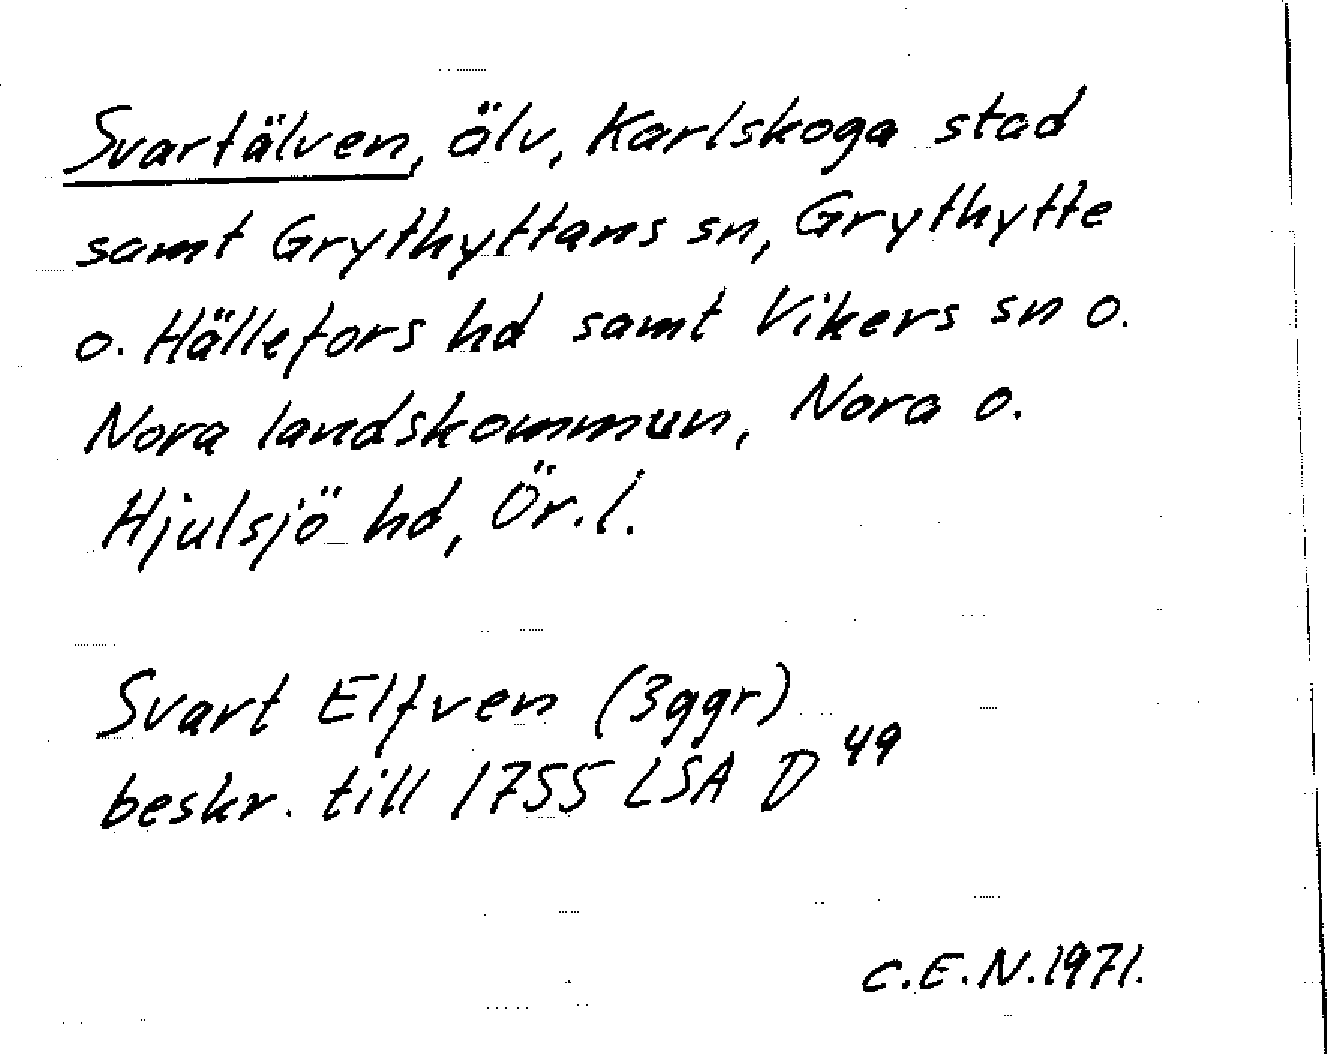 Svartälven, älv, Karlskoga stad
samt Grythyttans sn, Grythytte
o. Hällefors hd samt Vikers sn o.
Nora landskommun, Nora o.
Hjulsjö hd, Ör.l.
Svart Elfven (3ggr)
beskr. till 1755 LSA D 49
C.E.N. 1971.